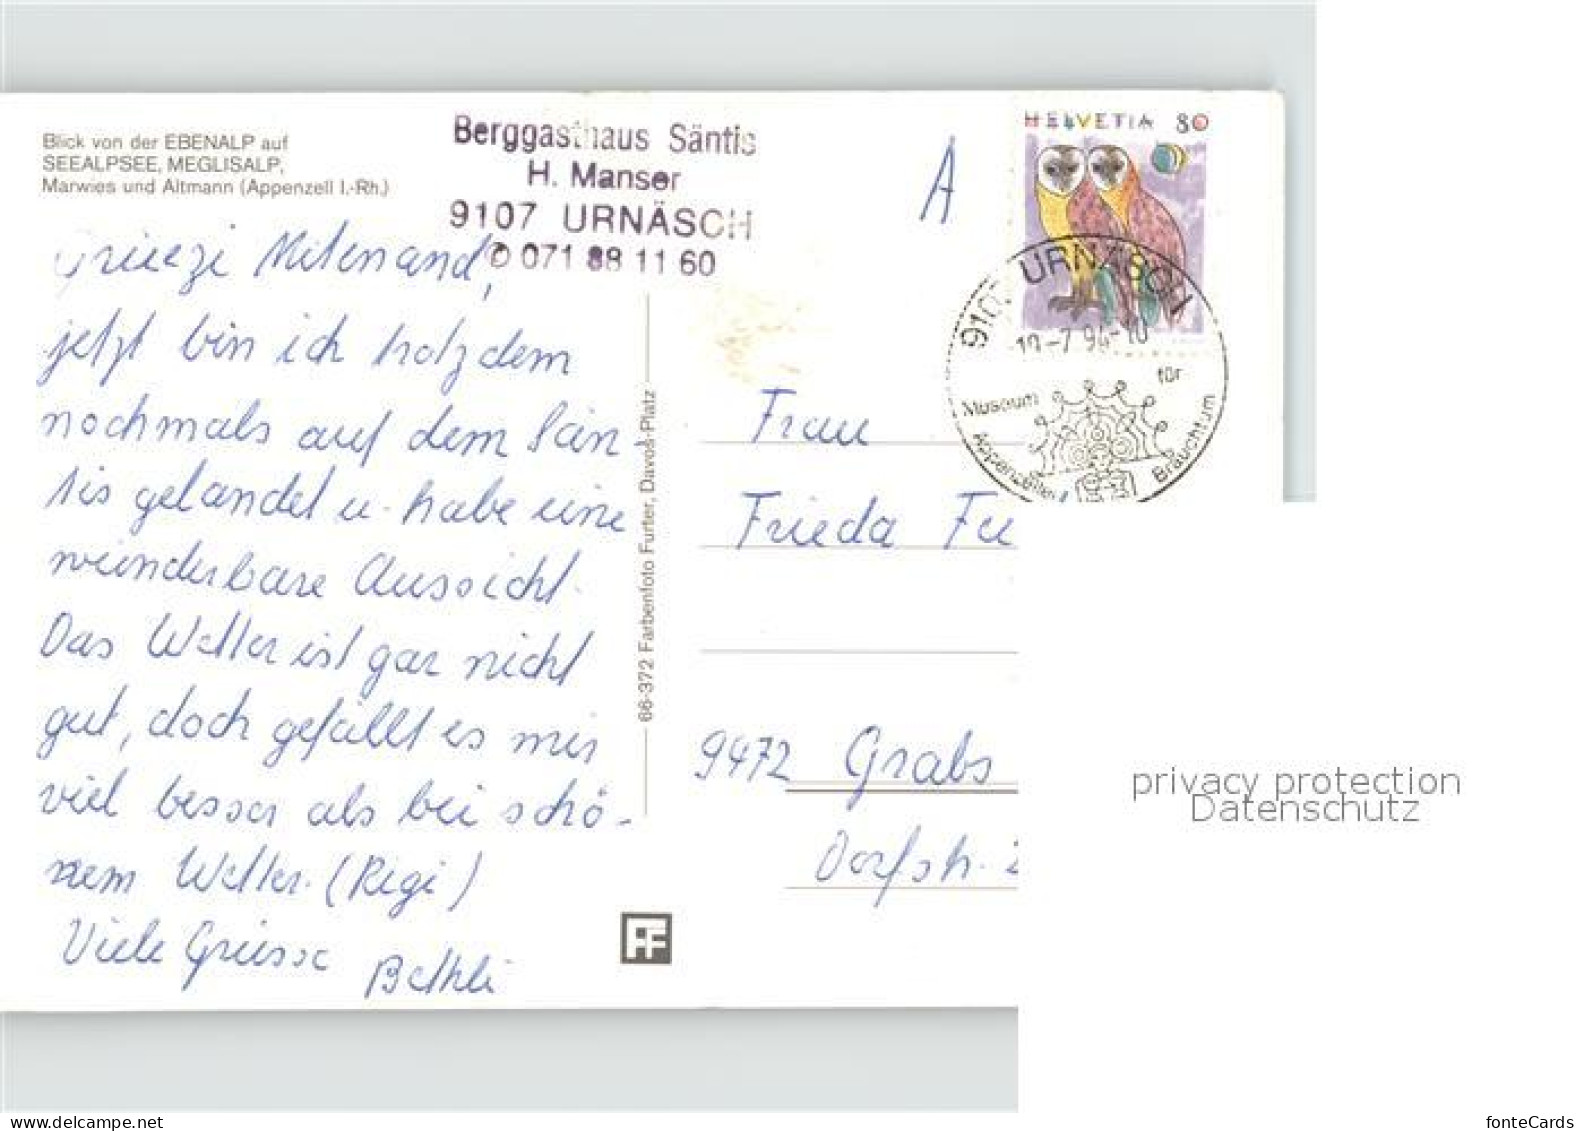 Blick von der EBENALP auf
SEEALPSEE, MEGLISALP,
Marwies und Altmann (Appenzell I.-Rh.)
Berggasthaus Säntis
H. Manser
9107 URNÄSCH
✆ 071 88 11 60
A
HELVETIA 80
9107 URNÄSCH
-7.94-10
Museum für
Appenzeller Brauchtum
Grüezi Mitenand,
jetzt bin ich trotzdem
nochmals auf dem Sän-
tis gelandet u. habe eine
wunderbare Aussicht.
Das Wetter ist gar nicht
gut, doch gefällt es mir
viel besser als bei schö-
nem Wetter. (Rigi)
Viele Grüsse Bethli
66-372 Farbenfoto Furter, Davos-Platz
FF
Frau
Frieda
9472 Grabs
Dorfstr.
privacy protection
Datenschutz
fonteCards